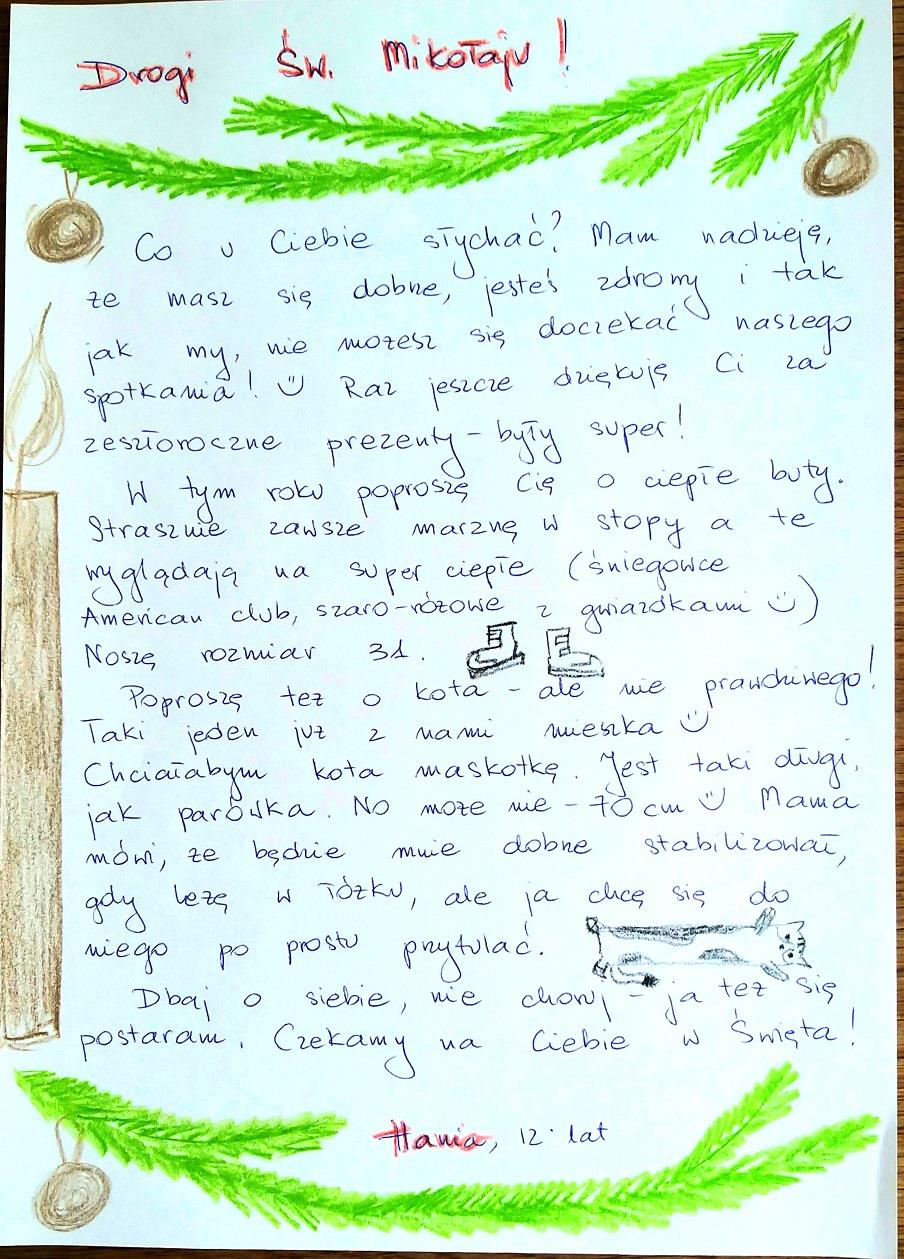 Drogi Św. Mikołaju!
Co u Ciebie słychać? Mam nadzieję,
że masz się dobrze, jesteś zdrowy i tak
jak my, nie możesz się doczekać naszego
spotkania! Raz jeszcze dziękuję Ci za
zeszłoroczne prezenty - były super!
W tym roku poproszę Cię o ciepłe buty.
Strasznie zawsze marznę w stopy a te
wyglądają na super ciepłe (śniegowce
American club, szaro-różowe z gwiazdkami)
Noszę rozmiar 31.
Poproszę też o kota - ale nie prawdziwego!
Taki jeden już z nami mieszka
Chciałabym kota maskotkę. Jest taki długi,
jak parówka. No może nie - 70 cm Mama
mówi, że będzie mnie dobrze stabilizował,
gdy leżę w łóżku, ale ja chcę się do
niego po prostu przytulać.
Dbaj o siebie, nie choruj - ja też się
postaram. Czekamy na Ciebie w Święta!
Hania, 12 lat